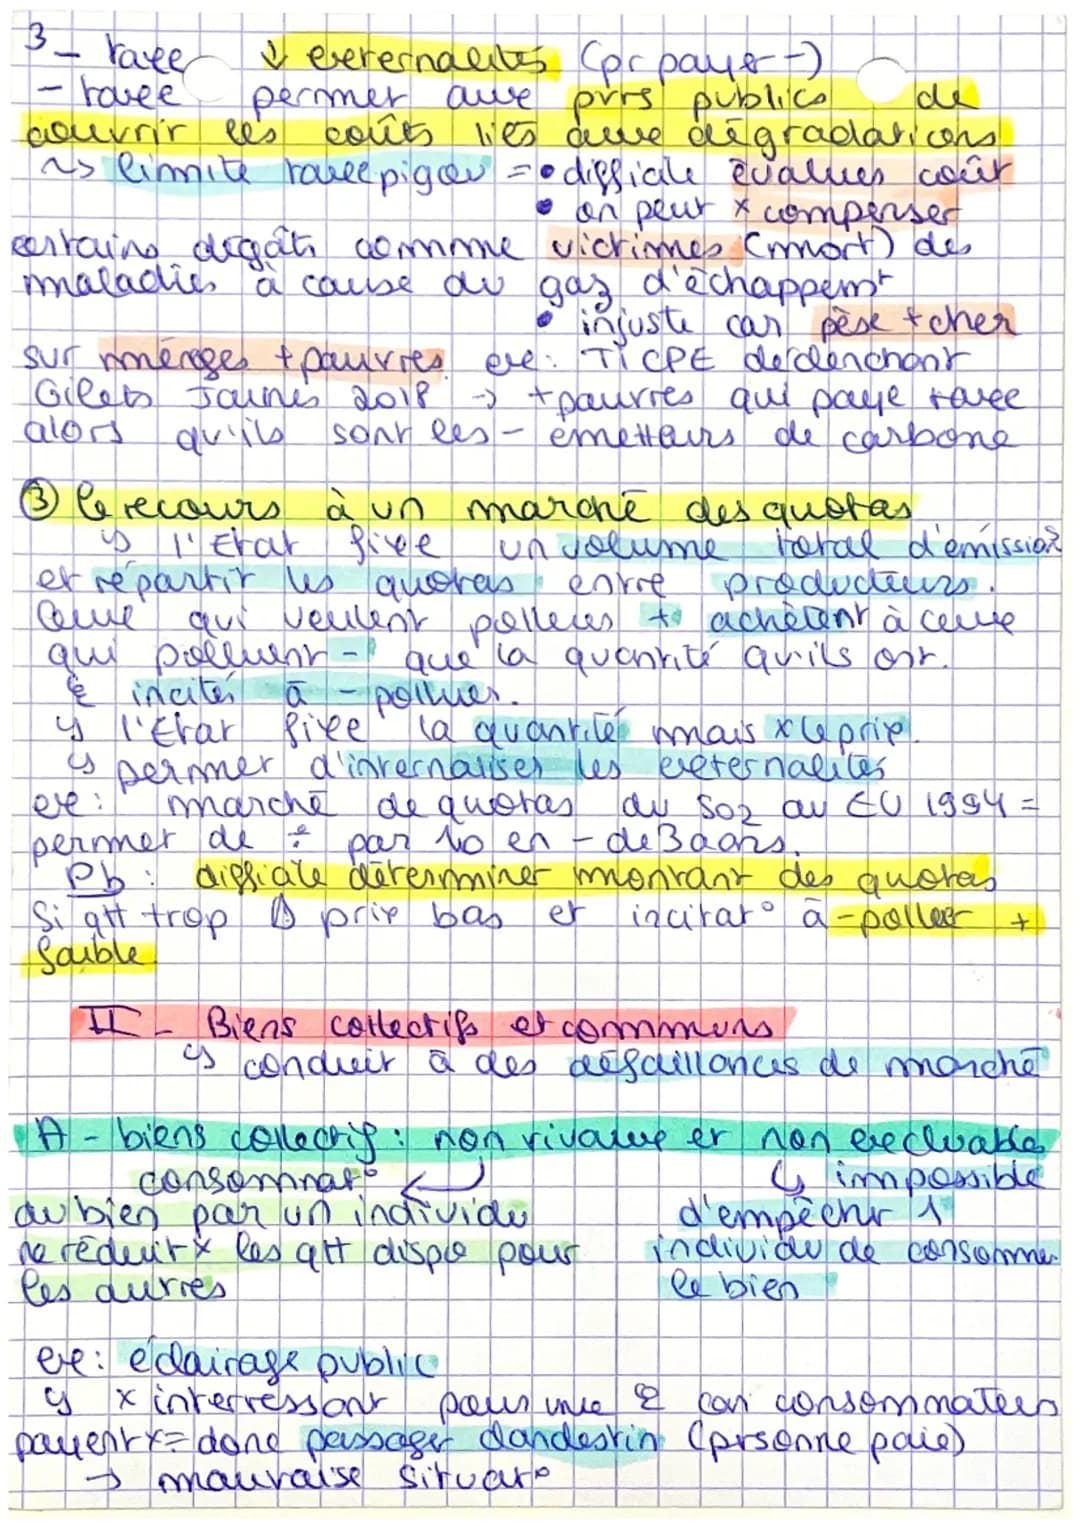 3 - taxe ↓ externalités (pr payer -)
- taxe permet aux pvrs publics de
couvrir les coûts liés aux dégradations
~> limite taxe pigou = • difficile évaluer coût
• on peut x compenser
certains dégâts comme victimes (mort) des
maladies à cause du gaz d'échappemt
• injuste car pèse + cher
sur ménges + pauvres ex: TICPE déclenchant
Gilets Jaunes 2018 -> + pauvres qui paye taxe
alors qu'ils sont les - émetteurs de carbone
③ le recours à un marché des quotas
↳ l'Etat fixe un volume total d'émission
et répartit les quotas entre producteurs.
Ceux qui veulent polluer + achètent à ceux
qui polluent - que la quantité qu'ils ont.
incités à - polluer.
↳ l'Etat fixe la quantité mais x le prix.
↳ permet d'internaliser les externalités
ex: marché de quotas du SO2 au EU 1994 =
permet de ÷ par 10 en - de 3 aans.
Pb: difficile déterminer montant des quotas
Si qtt trop ⇧ prix bas et incitat° à - polluer +
faible.
II - Biens collectifs et communs
↳ conduit à des défaillances de marché
A - biens collectifs : non rivaux et non excluables
consommat° ↳ impossible
du bien par un individu d'empêcher 1
ne réduit x les qtt dispo pour individu de consommer
les autres le bien
ex: éclairage public
↳ x interressant pour une car consommateurs
payent x = donc passager clandestin (prsonne paie)
→ mauvaise situat°